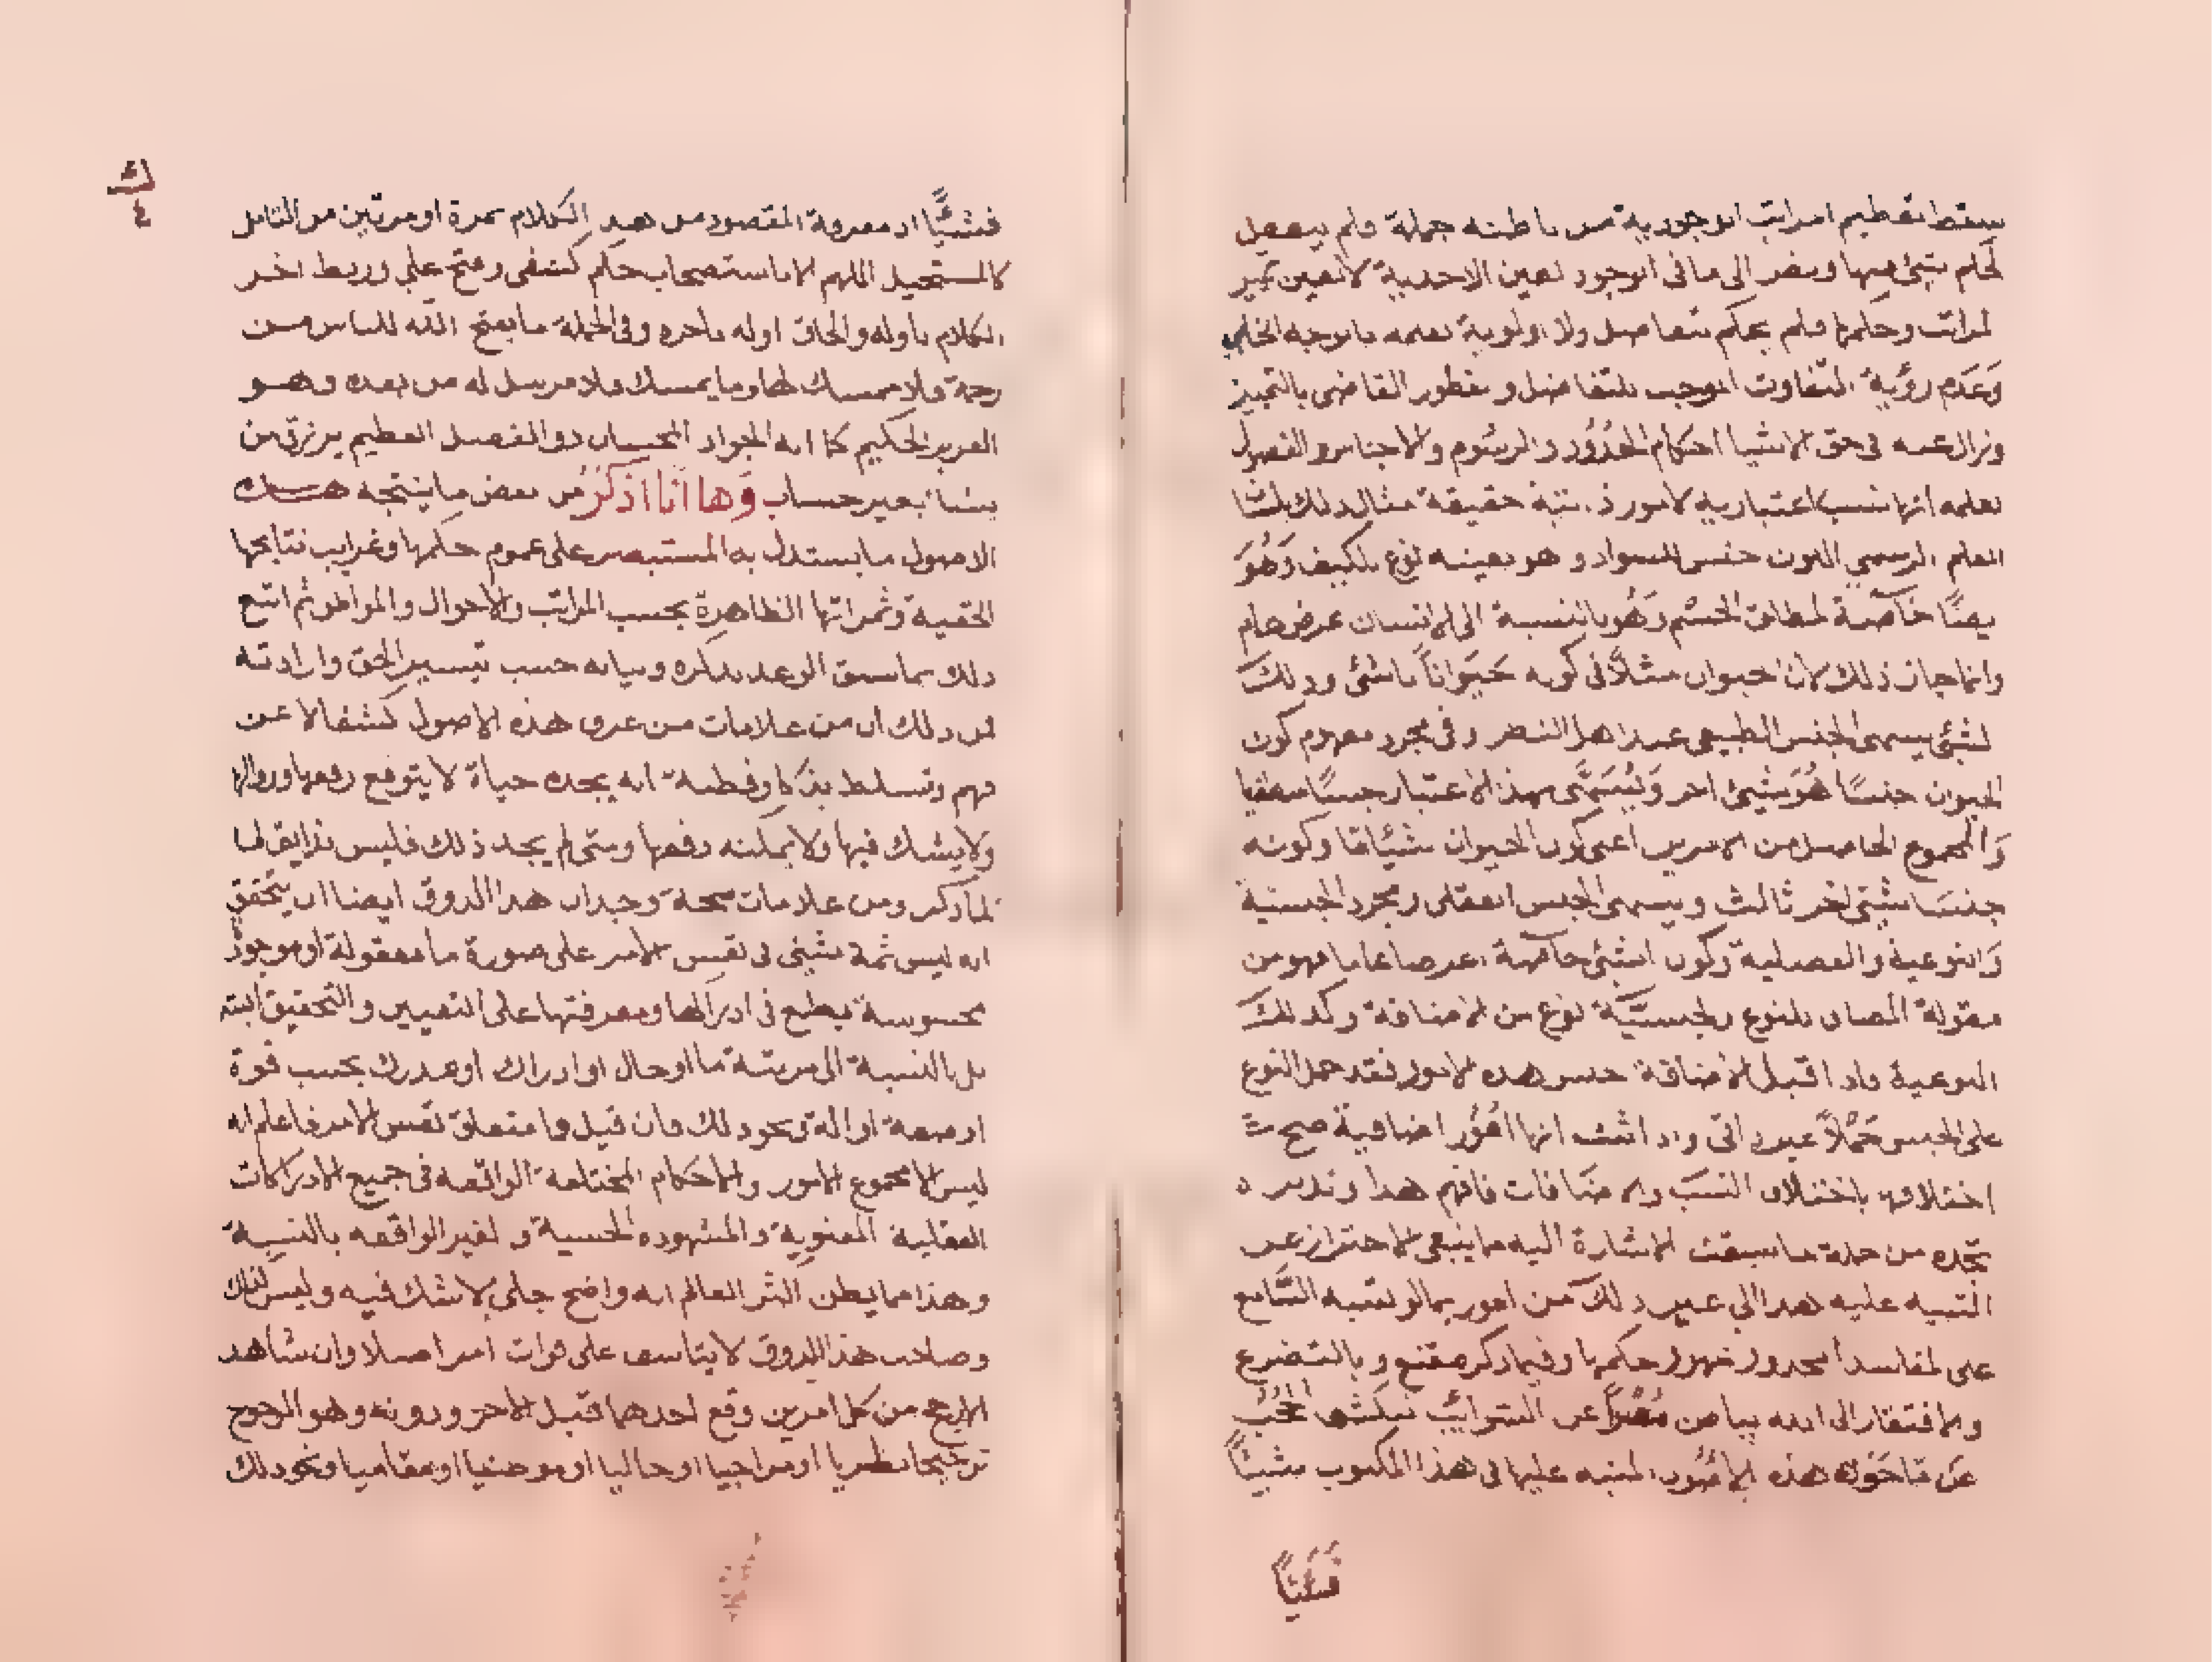 سقط تعظيم المراتب الوجودية من باطنه جملة ولم ينفعل
لحكم شئ منها ونظر الى ما في الوجود بعين الاحدية لا بعين تمييز
المراتب وحكمها فلم يحكم بتفاضل ولا اولوية لعلمه بالوجه
وَعَدَم رؤية التفاوت الموجب للتفاضل و القاضى بالتمييز
ونزال عنه في حق الاشيا احكام الحُدُوْد والرسُوم والاجناس والفصول
لعلمه انها نسب اعتبارية لامور حقيقة مثال ذلك
العلم الرسمي اللون جنس للسواد و هو بعينه نوع للكيف وَهُوَ
ايضًا خاصّة لمطلق الجسم وَهُو بالنسبة الى الانسان عرض عام
وانما جاز ذلك لان الحيوان مثلاً في كونه حَيَوَاناً ما شئ وذلك
الشئ يسمى الجنس الطبيعي عند اهل النظر وفي مجرد مفهوم كون
الحيوان جنسًا هُوَ شيئ اخر وَيُسَمَّى بهذا الاعتبار جنسًا منطقيا
وَالمجموع الحاصل من الامرين اعنى كون الحيوان شيئا ما وكونه
جنسًا شئ اخر ثالث ويسمى الجنس العقلى ومجرد الجنسية
وَالنوعية والفصلية وكون الشئ خاصة او عرضا عاما فهو من
مقولة المضاف فلنوع الجنسيّة نوع من الاضافة وكذلك
النوعية واذا قيل الاضافة جنس هذه الامور فقد حمل النوع
على الجنس حَمْلاً غير ذاتى واذا ثبت انها امُوْر اضافية صح
اختلافها باختلاف النسَب والاضَافات فافهم هذا وتدبر ه
تجده من جملة ما سبقت الاشارة اليه مما ينبغى الاحتراز عن
التنبيه عليه هذا الى غير ذلك من امور مما لو تنبه السَّامع
على المفاسد ظهور حكمها وفيما ذكر مقنع وبالتضرع
والافتقار الى الله عن الشوائب تنكشف الحُجُب
عن ما حَوَته هذه الاصُول المنبه عليها في هذا المكتوب شيئًا
فشيئاً
ك
٤
فشيئًا اذ معرفة المقصود من هذا الكلام بمرة او مرتين من التامل
كالمستحيل اللهم الا باستصحاب حكم كشفى وفتح علي وربط اخر
الكلام باوله والحاق اوله باخره وفي الجملة ما يفتح الله للناس من
رحمة فلا ممسك لها وما يمسك فلا مرسل له من بعده وهو
العزيز الحكيم كما انه الجواد المحسان ذو الفضل العظيم يرزق من
يشا بغير حساب وَها انَا اذكُرُ من بعض ما ينتجه هـذه
الاصول ما يستدل به المستبصر على عموم حكمها وغرايب نتايجها
الخفية وثمراتها الظاهرة بحسب المراتب والاحوال والمواطن ثم اتبع
ذلك بما سبق الوعد بذكره وبيانه حسب تيسير الحق وارادته
فمن ذلك ان من علامات من عرف هذه الاصول كشفا لا عن
فهم وتسلط بذكا وفطنة انه يجده حياة لا يتوقع رفعها وزوالها
ولا يشك فيها ولا يمكنه رفعها ومتى لم يجد ذلك فليس بذايق لما
لما ذكر ومن علامات صحة وجدان هذا الذوق ايضا ان يتحقق
انه ليس ثمة شئ فى نفس الامر على صورة ما معقولة او موجودة
محسوسة يطمع فى ادراكها ومعرفتها على التعيين والتحقيق البتة
بل بالنسبة الى مرتبة ما او حال او ادراك او مدرك بحسب قوة
او صفة او الة ونحو ذلك فان قيل فما متعلق نفس الامر فاعلم انه
ليس الا مجموع الامور والاحكام المختلفة الواقعه فى جميع الادراكات
العقلية المعنوية والمشهوده الحسية و لغير الواقعه بالنسبة
وهذا مما يظن اكثر العالم انه واضح جلى لا شك فيه وليس كذلك
وصاحب هذا الذوق لا يتاسف على فوات امر اصلا وان شاهد
الارجح من كل امرين وقع احدهما قبل الاخر ودونه وهو المرجوح
ترجيحا نظريا او مزاجيا او حاليا او موطنيا او مقاميا ونحو ذلك